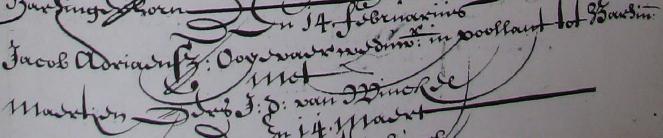 Barsingerhorn
Den 14. Februarius
Jacob Adriaensz: Oogevaer weduwr: in poollant tot Barsin:
Met
Maertjen J: D: van Winckel
Den 14. Maert